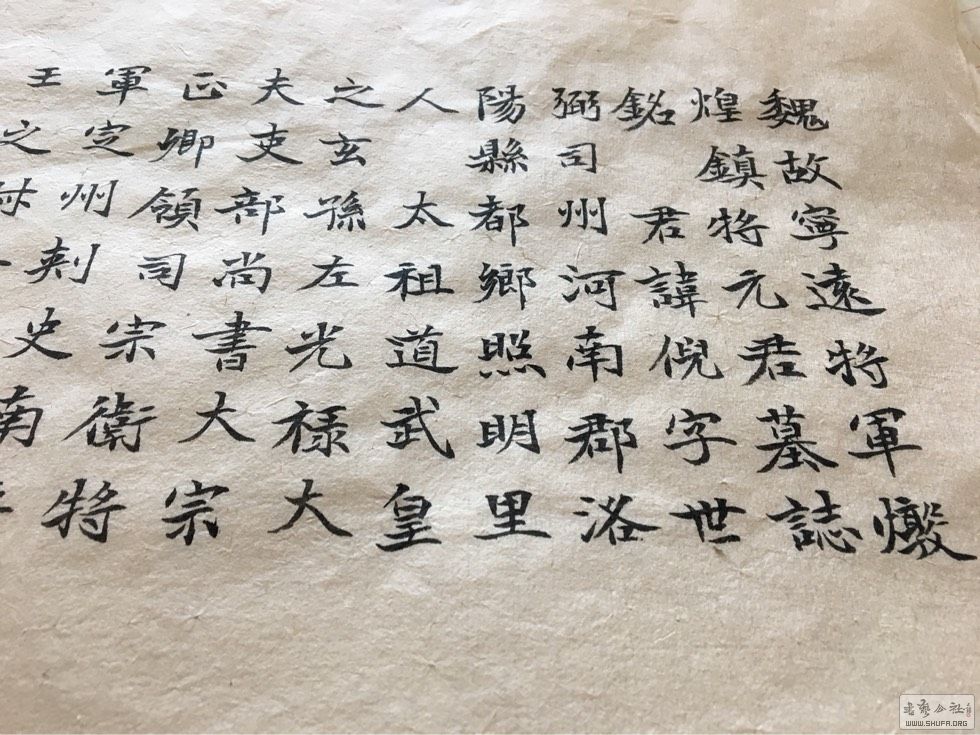 魏故寧遠將軍燉
煌鎮將元君墓誌
銘 君諱倪字世
弼司州河南郡洛
陽縣都鄉照明里
人 太祖道武皇
之玄孫左光祿大
夫吏部尚書大宗
正卿領司宗衛將
軍定州刺史南
王之
WWW.SHUFA.ORG